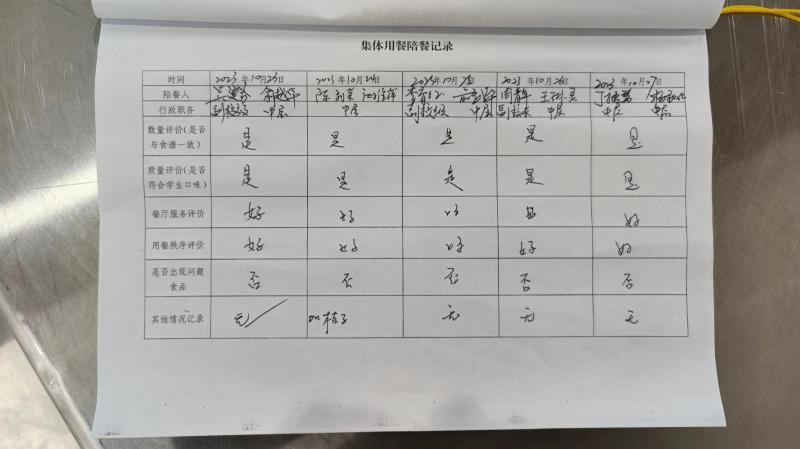 集体用餐陪餐记录
时间 2023年10月23日 2023年10月24日 2023年10月25日 2023年10月26日 2023年10月27日
陪餐人 周静
行政职务 副校级 中层 中层 副校级 中层 副校长 中层 中层 中层
数量评价(是否与食谱一致) 是 是 是 是 是
质量评价(是否符合学生口味) 是 是 是 是 是
餐厅服务评价 好 好 好 好 好
用餐秩序评价 好 好 好 好 好
是否出现问题食品 否 否 否 否 否
其他情况记录 无 加桔子 无 无 无